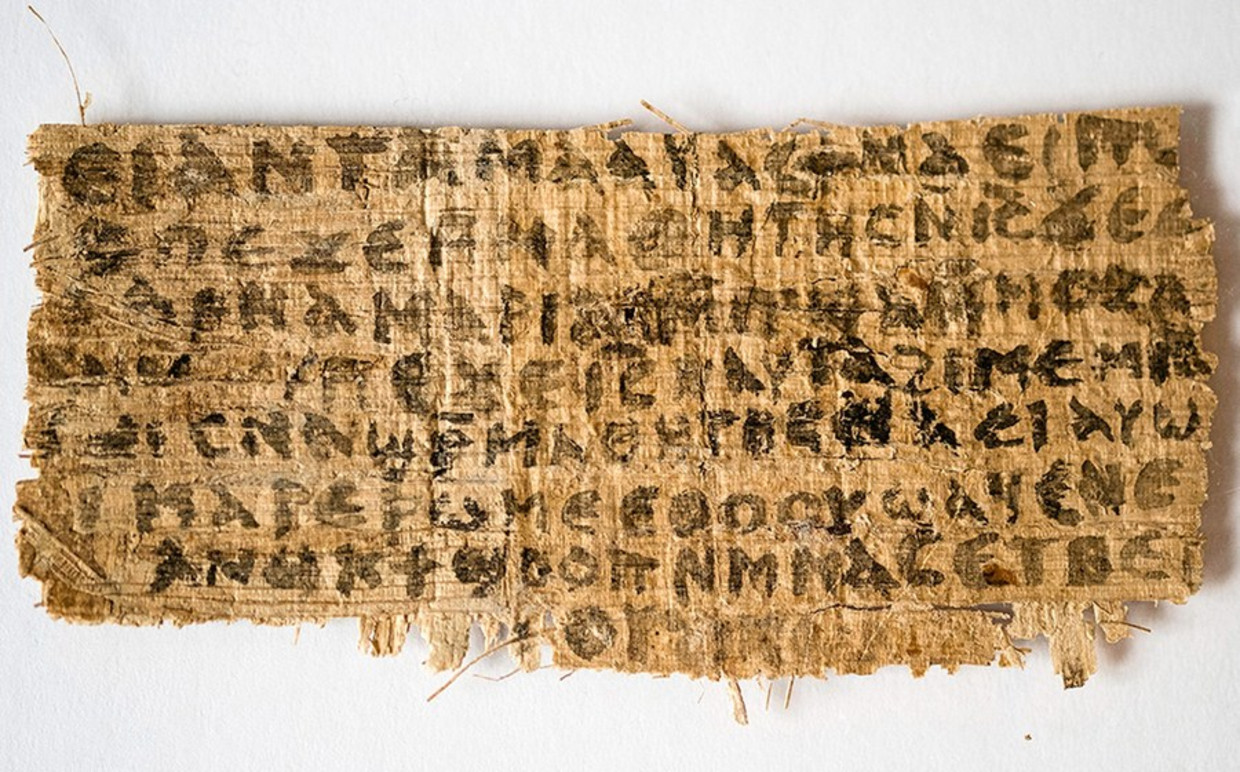 ⲉⲓ ⲁⲛ ⲧⲁⲙⲁⲁⲩ ⲁⲥϯ ⲛⲁⲉⲓ
ⲡⲉϫⲉ ⲙⲙⲁⲑⲏⲧⲏⲥ ⲛⲓ̅ⲥ̅ ϫⲉ
ⲁⲣⲛⲁ ⲙⲁⲣⲓⲁⲙ ⲙⲡϣⲁ ⲙⲙⲟⲥ
ⲡⲉϫⲉ ⲓ̅ⲥ̅ ⲛⲁⲩ ⲧⲁϩⲓⲙⲉ ⲙⲛ
ⲥⲛⲁϣⲣ̅ⲙⲁⲑⲏⲧⲏⲥ ⲛⲁⲉⲓ ⲁⲩⲱ
ⲙⲁⲣⲉⲣⲱⲙⲉ ⲉⲑⲟⲟⲩ ϣⲁϥⲉ ⲛⲉ
ⲁⲛⲟⲕ ϯϣⲟⲟⲡ ⲛⲙⲙⲁⲥ ⲉⲧⲃⲉ